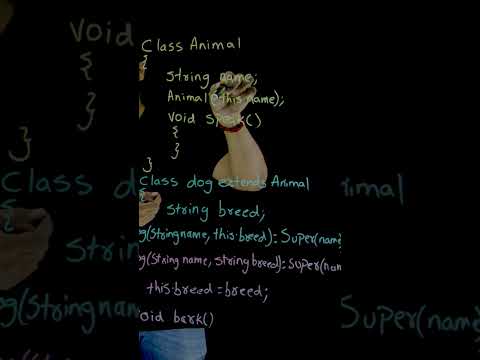 void
{
}
}
Class Animal
{
String name;
Animal(this.name);
void speak()
{
}
}
Class do
nimal
{
String
g(String na
Super(nam
Class dog extends Animal
{
String breed;
g(String name, this.breed):Super(name
g(String name, String breed):super(nam
this.breed = breed;
oid bark()